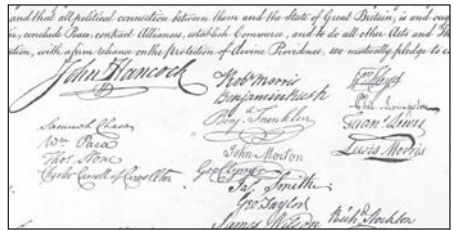 and that all political connection between them and the State of Great Britain, is and ough
r, conclude Peace, contract Alliances, establish Commerce, and to do all other Acts and Th
tion, with a firm reliance on the protection of divine Providence, we mutually pledge to e
John Hancock
Samuel Chase
Wm Paca
Thos Stone
Charles Carroll of Carrollton
Robt Morris
Benjamin Rush
Benj Franklin
John Morton
Geo Clymer
Jas Smith
Geo Taylor
James Wilson
Phil. Livingston
Frans Lewis
Lewis Morris
Richd Stockton